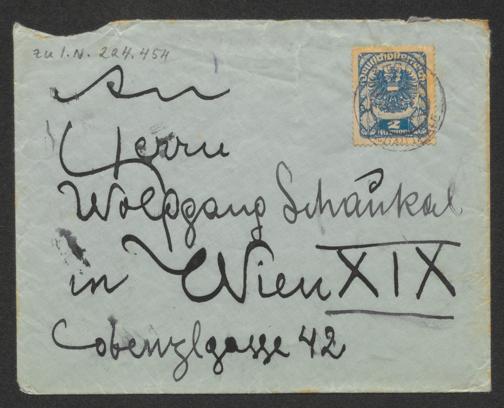 zu I.N. 224.454
Deutschösterreich
2
An
Herrn
Wolfgang Schaukal
in Wien XIX
Cobenzlgasse 42